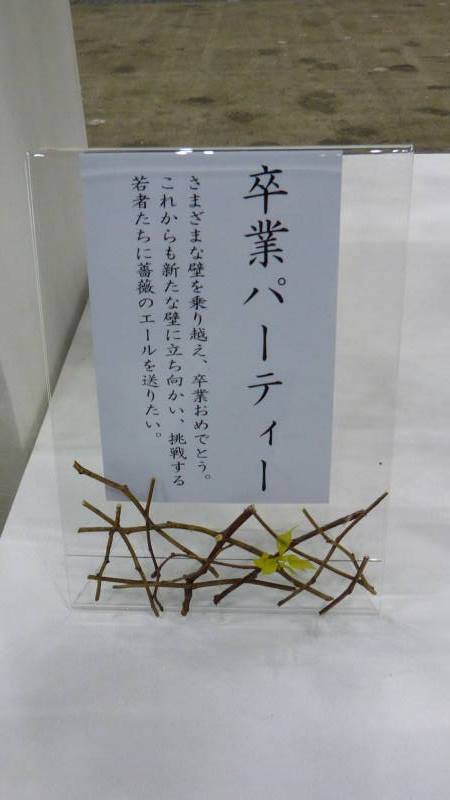 卒業パーティー
さまざまな壁を乗り越え、卒業おめでとう。
これからも新たな壁に立ち向かい、挑戦する
若者たちに薔薇のエールを送りたい。